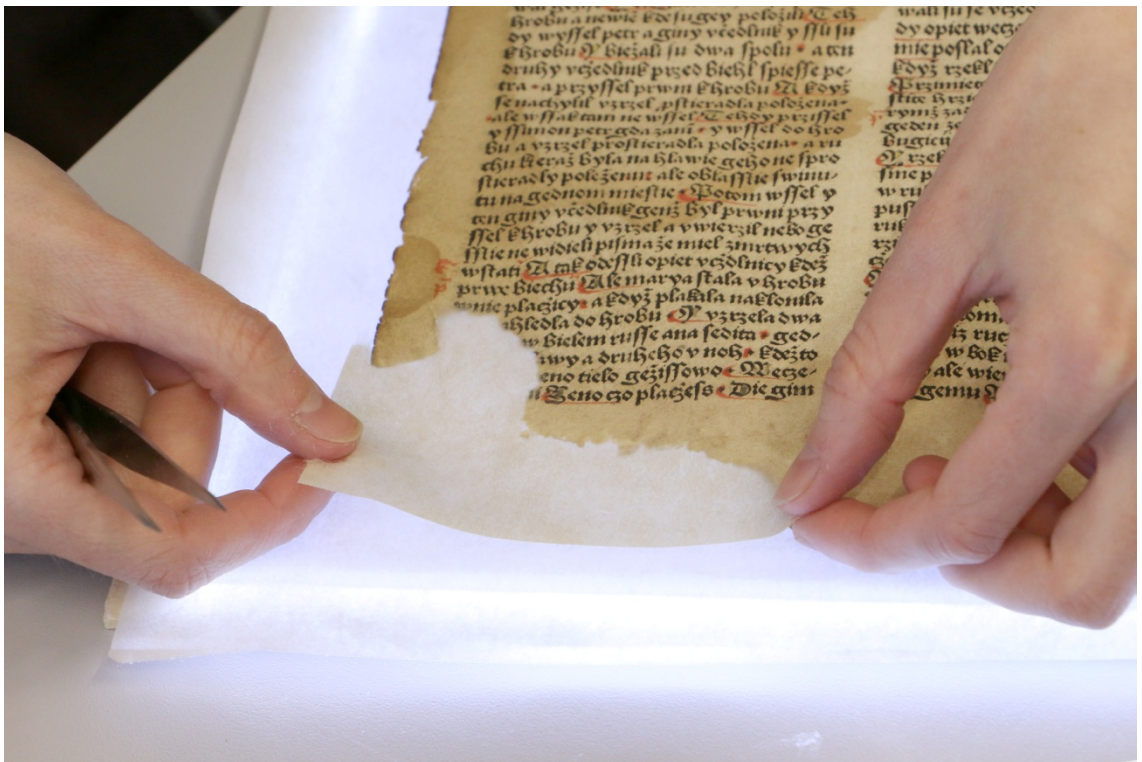 hrobu a newie kde su gey položili Teh
dy wyssel petr a giny včedlnik y ssli su
k hrobu Y biežali su dwa spolu • a ten
druhy včedlnik przed biehl spiesse pe-
tra • a przyssel prwni k hrobu A když
se nachylil vzrzel pstieradla položena-
ale wssak tam ne wssel Tehdy przissel
y ssimon petr gda zani • y wssel do hro
bu a vzrzel prostieradla položena • a ru
chu keraž byla na hlawie geho ne s pro
stieradly položenu ale oblasstie swinu-
tu na gednom miestie Potom wssel y
ten giny včedlnik genž byl prwni przy
ssel k hrobu y vzrzel a vwierzil nebo ge
sstie ne widieli pisma že miel z mrtwych
wstati A tak odessli opiet včedlnicy kdež
prwe biechu Ale marya stala v hrobu
wnie placzicy • a když plakala naklonila
hledla do hrobu Y vzrzela dwa
w bielem russe ana sedita • ged-
awy a druheho v noh • kdežto
eno tielo gežissowo Wecze-
Ženo czo placžess Die gim
wali su se
dy opiet wecze
mie poslal
když rzekl
Przimiet
rymž
geden že
bugicu
Y rzek
sme p
w ru
pus
ruk
rz
om
iz ruc
w bok
ale wie
gemu